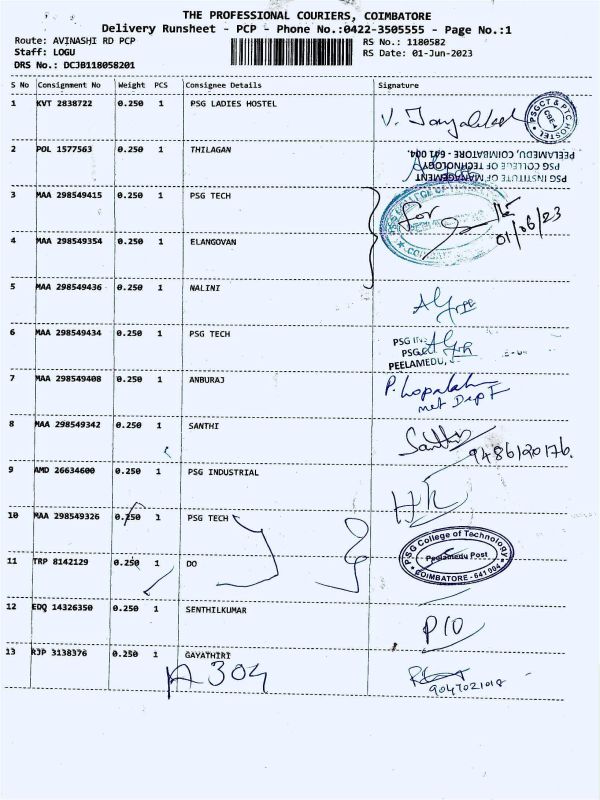 THE PROFESSIONAL COURIERS, COIMBATORE
Delivery Runsheet - PCP - Phone No.:0422-3505555 - Page No.:1
Route: AVINASHI RD PCP RS No.: 1180582
Staff: LOGU RS Date: 01-Jun-2023
DRS No.: DCJB118058201
S No Consignment No Weight PCS Consignee Details Signature
1 KVT 2838722 0.250 1 PSG LADIES HOSTEL
PSGCT & PTC HOSTEL
2 POL 1577563 0.250 1 THILAGAN
PSG INSTITUTE OF MANAGEMENT
PSG COLLEGE OF TECHNOLOGY
PEELAMEDU, COIMBATORE - 641 004
3 MAA 298549415 0.250 1 PSG TECH
for
01/06/23
4 MAA 298549354 0.250 1 ELANGOVAN
5 MAA 298549436 0.250 1 NALINI
6 MAA 298549434 0.250 1 PSG TECH
PSG
PEELAMEDU,
7 MAA 298549408 0.250 1 ANBURAJ
8 MAA 298549342 0.250 1 SANTHI
Santhi
9486120176.
9 AMD 26634600 0.250 1 PSG INDUSTRIAL
10 MAA 298549326 0.250 1 PSG TECH
PSG College of Technology
Peelamedu Post
COIMBATORE - 641 004
11 TRP 8142129 0.250 1 DO
12 EDQ 14326350 0.250 1 SENTHILKUMAR
P10
13 RJP 3138376 0.250 1 GAYATHIRI
A 304
9047021018